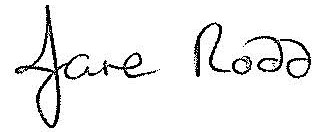 Jane Rodd